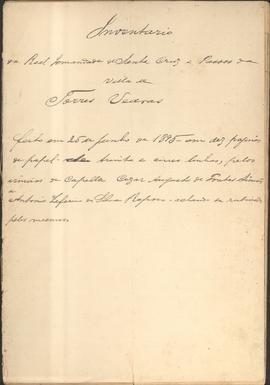 Inventario
da Real Irmandade de Santa Cruz e Passos da
Villa de
Torres Vedras
feito em 25 de Junho de 1885 em dez paginas
de papel de trinta e cinco linhas, pelos
irmãos da Capella Cezar Augusto de Fontes
e
Antonio da Silva
pelos mesmos.